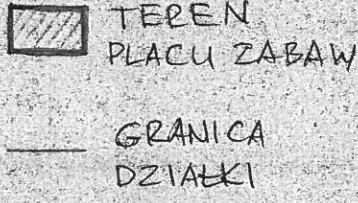 TEREN
PLACU ZABAW
GRANICA
DZIAŁKI